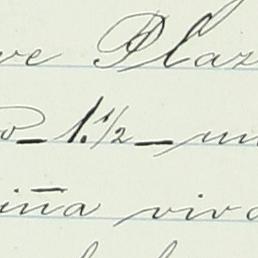 ve Plaz
o_1.½_un
iña viva